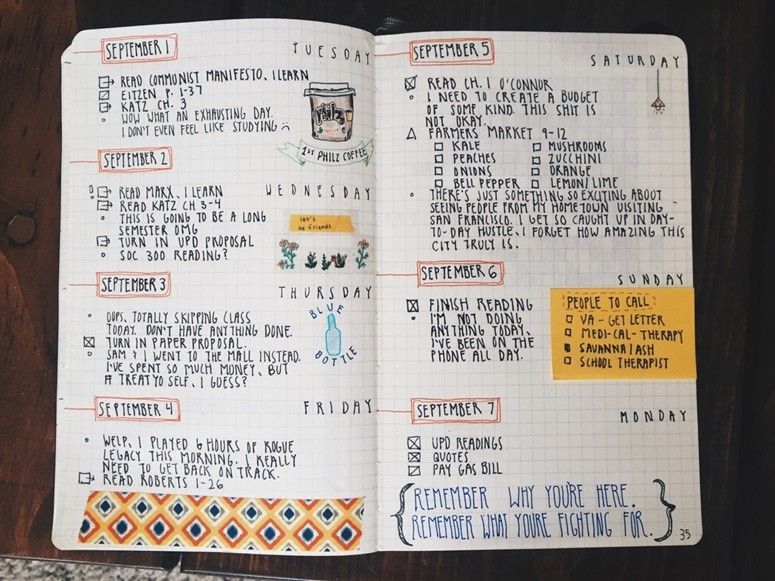 SEPTEMBER 1
TUESDAY
READ COMMUNIST MANIFESTO, ILEARN
EITZEN P. 1-37
KATZ CH. 3
WOW WHAT AN EXHAUSTING DAY.
I DON'T EVEN FEEL LIKE STUDYING
PHILZ
1ST PHILZ COFFEE
SEPTEMBER 2
WEDNESDAY
READ MARX, ILEARN
READ KATZ CH 3-4
THIS IS GOING TO BE A LONG
SEMESTER OMG
TURN IN UPD PROPOSAL
SOC 300 READING?
let's
be friends
SEPTEMBER 3
THURSDAY
OOPS, TOTALLY SKIPPING CLASS
TODAY. DON'T HAVE ANYTHING DONE.
TURN IN PAPER PROPOSAL.
SAM & I WENT TO THE MALL INSTEAD.
I'VE SPENT SO MUCH MONEY, BUT
# TREAT YO SELF, I GUESS?
BLUE
BOTTLE
SEPTEMBER 4
FRIDAY
WELP, I PLAYED 6 HOURS OF ROGUE
LEGACY THIS MORNING. I REALLY
NEED TO GET BACK ON TRACK.
READ ROBERTS 1-26
SEPTEMBER 5
SATURDAY
READ CH. 1 O'CONNOR
I NEED TO CREATE A BUDGET
OF SOME KIND. THIS SHIT IS
NOT OKAY.
FARMERS MARKET 9-12
KALE
PEACHES
ONIONS
BELL PEPPER
MUSHROOMS
ZUCCHINI
ORANGE
LEMON/LIME
THERE'S JUST SOMETHING SO EXCITING ABOUT
SEEING PEOPLE FROM MY HOMETOWN VISITING
SAN FRANCISCO. I GET SO CAUGHT UP IN DAY-
TO-DAY HUSTLE. I FORGET HOW AMAZING THIS
CITY TRULY IS.
SEPTEMBER 6
SUNDAY
FINISH READING
I'M NOT DOING
ANYTHING TODAY.
I'VE BEEN ON THE
PHONE ALL DAY.
PEOPLE TO CALL
VA - GET LETTER
MEDI-CAL-THERAPY
SAVANNA/ASH
SCHOOL THERAPIST
SEPTEMBER 7
MONDAY
UPD READINGS
QUOTES
PAY GAS BILL
REMEMBER WHY YOU'RE HERE.
REMEMBER WHAT YOU'RE FIGHTING FOR.
35